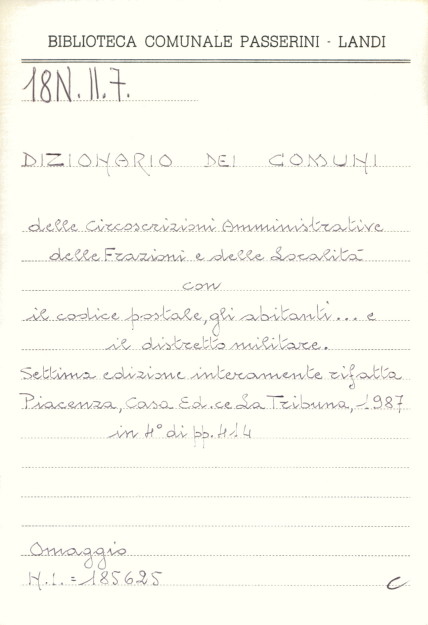 BIBLIOTECA COMUNALE PASSERINI - LANDI
18N.II.7.
DIZIONARIO DEI COMUNI
delle Circoscrizioni Amministrative
delle Frazioni e delle Località
con
il codice postale, gli abitanti... e
il distretto militare.
Settima edizione interamente rifatta
Piacenza, Casa Ed.ce La Tribuna, 1987
in 4° di pp. 414
Omaggio
N.I. = 185625
C